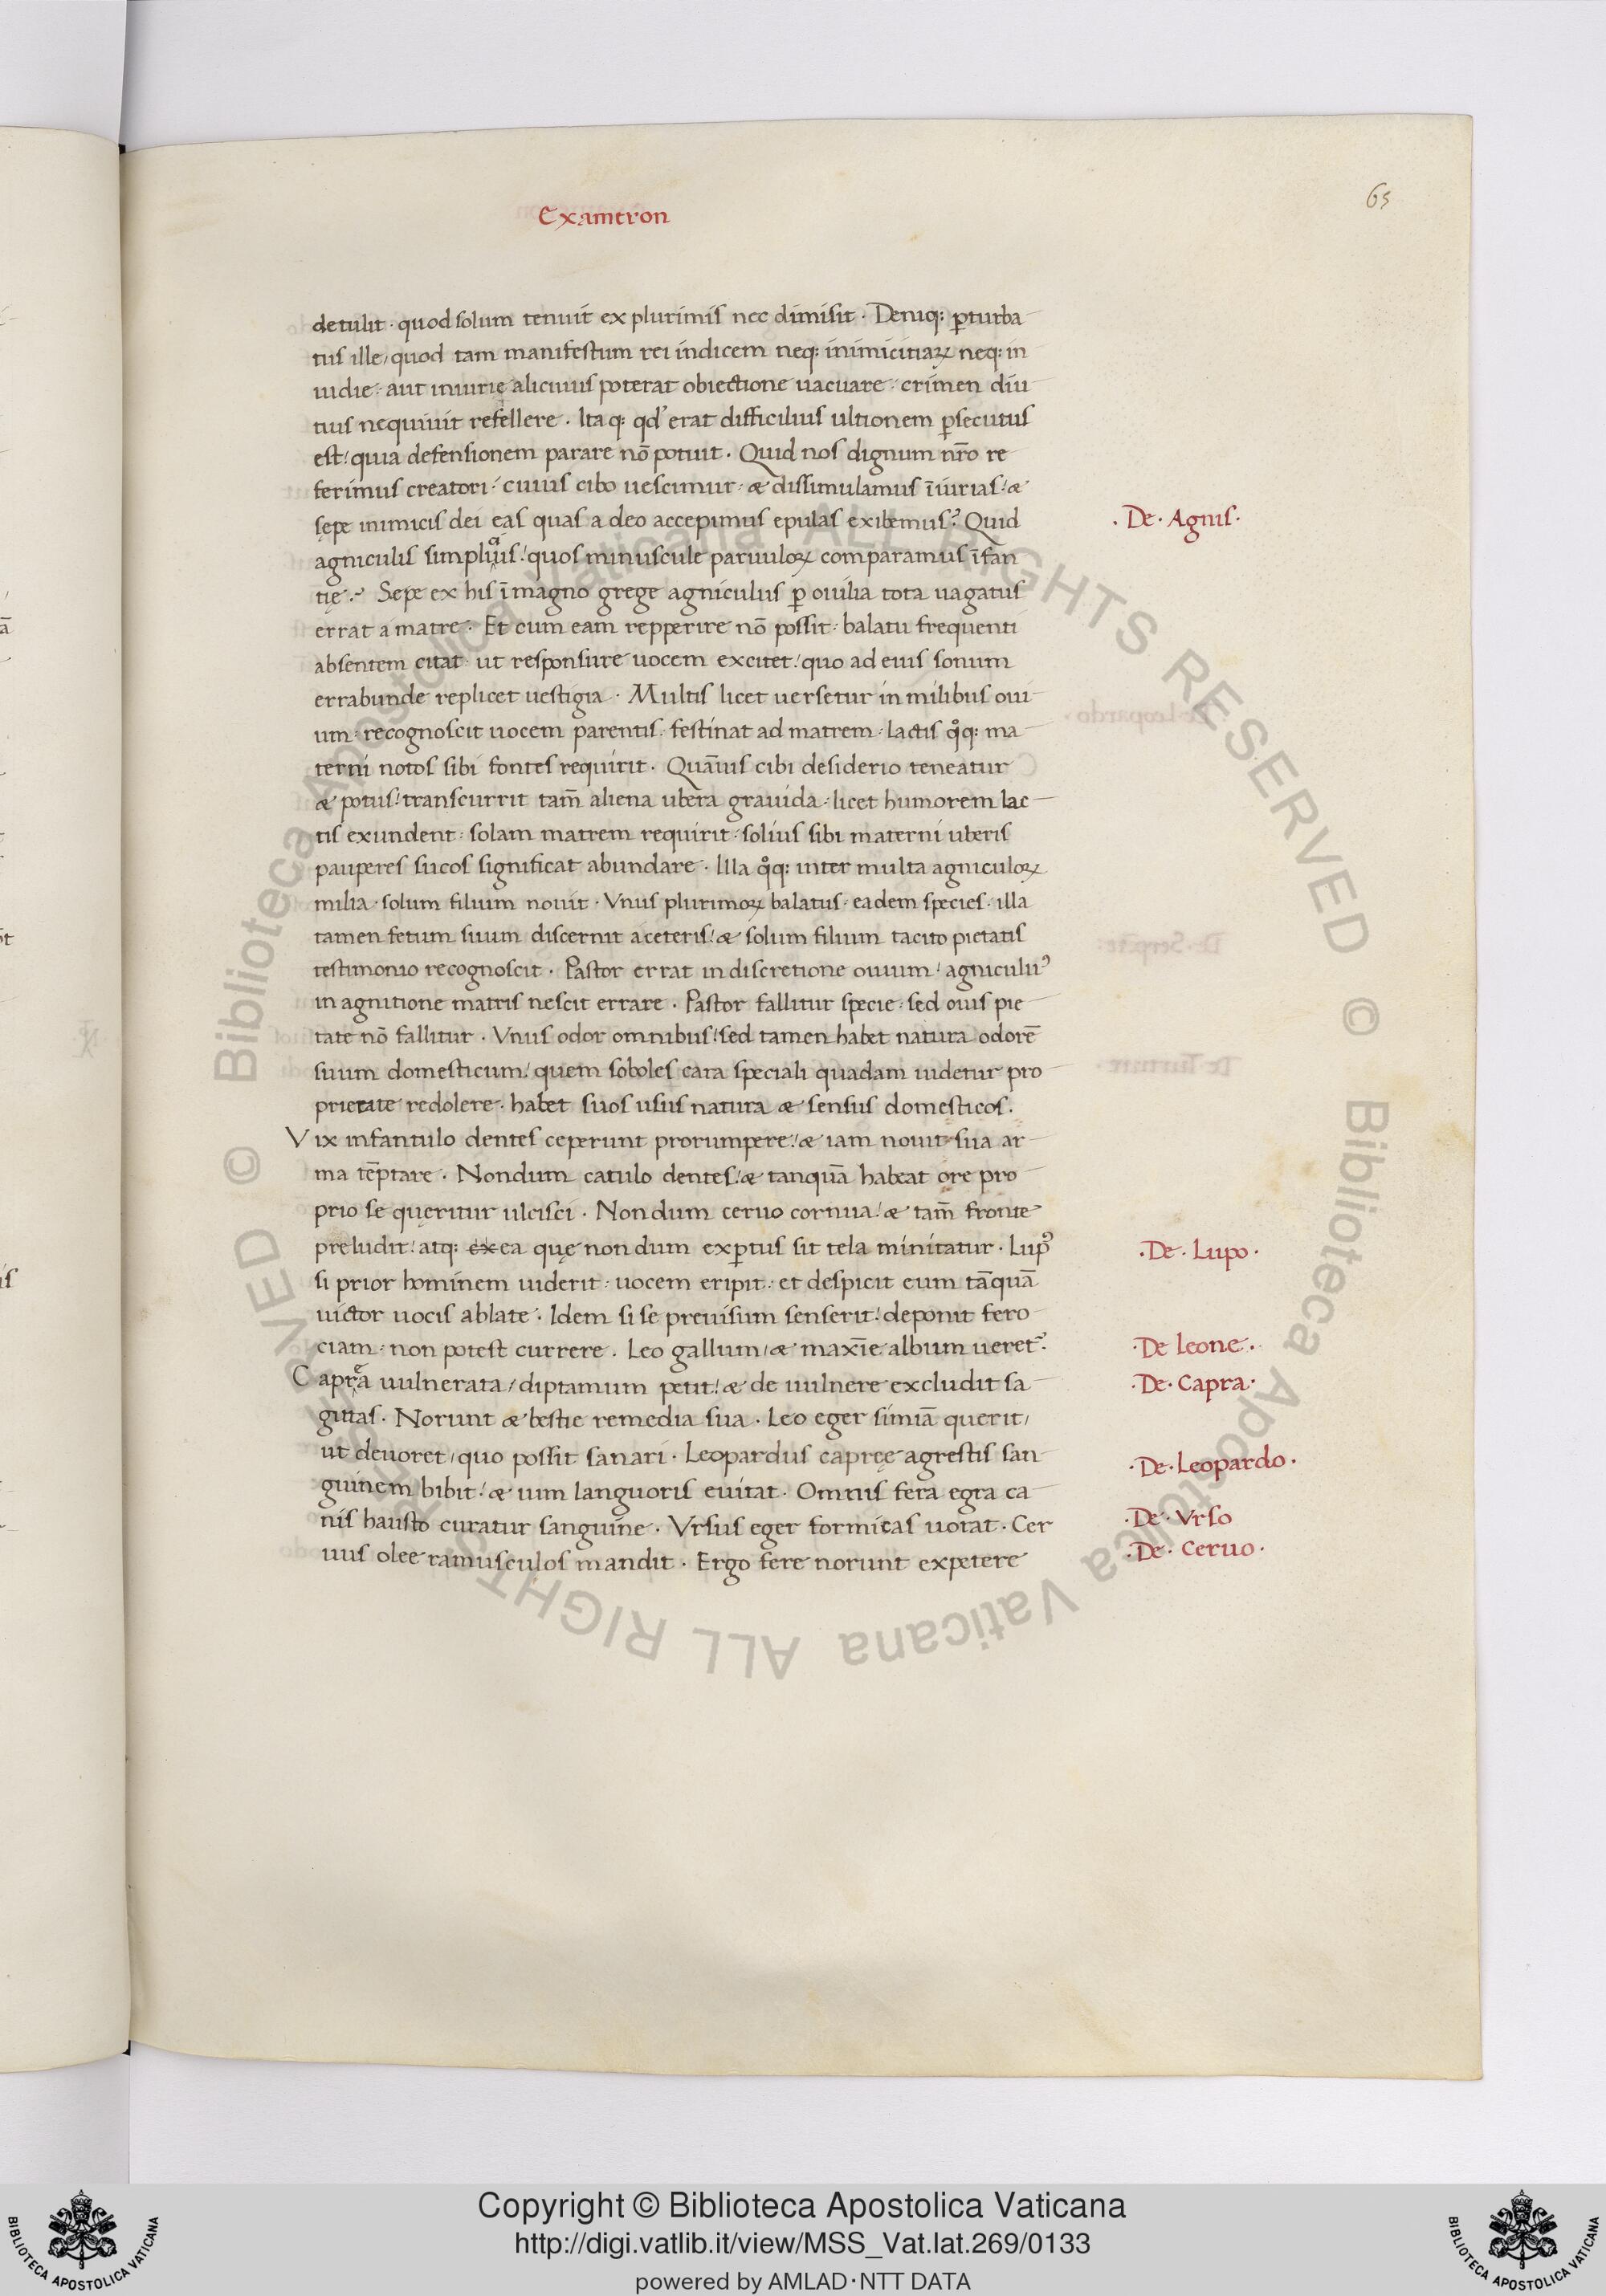 65
Exameron
detulit · quod solum tenuit ex plurimis nec dimisit · Deniq: p̱turba
tus ille, quod tam manifestum rei indicem neq: inimicitiaꝝ neq: in
uidie · aut iniurię alicuius poterat obiectione uacuare · crimen diu
tius nequiuit refellere · Itaq: qd' erat difficilius ultionem ꝑsecutus
est! quia defensionem parare nō potuit · Quid nos dignum nr̄o re
ferimus creatori · cuius cibo uescimur · & dissimulamus īiurias! &
sępe inimicis dei eas quas a deo accepimus epulas exibemus? Quid
agniculis simplius! quos minuscule paruuloꝝ comparamus īfan
tię · Sepe ex his ī magno grege agniculus ꝑ ouilia tota uagatus
errat a matre · Et cum eam repperire nō possit · balatu frequenti
absentem citat · ut responsure uocem excitet! quo ad eius sonum
errabunde replicet uestigia · Multis licet uersetur in milibus oui
um · recognoscit uocem parentis · festinat ad matrem · lactis qͦq: ma
terni notos sibi fontes requirit · Quāuis cibi desiderio teneatur
& potus! transcurrit tam̄ aliena ubera grauida · licet humorem lac
tis exundent · solam matrem requirit · solius sibi materni uberis
pauperes sucos significat abundare · Illa qͦq: inter multa agniculoꝝ
milia · solum filium nouit · Vnus plurimoꝝ balatus · eadem species · illa
tamen fetum suum discernit a ceteris! & solum filium tacito pietatis
testimonio recognoscit · Pastor errat in discretione ouium! agnicului᾽
in agnitione matris nescit errare · Pastor fallitur specie · sed ouis pie
tate nō fallitur · Vnus odor omnibus! sed tamen habet natura odorē
suum domesticum! quem soboles cara speciali quadam uidetur pro
prietate redolere · habet suos usus natura & sensus domesticos ·
Vix infantulo dentes ceperunt prorumpere! & iam nouit sua ar
ma tēptare · Nondum catulo dentes! & tanquā habeat ore pro
prio se queritur ulcisci · Nondum ceruo cornua! & tam̄ fronte
preludit! atq: ex ea quę nondum exꝑtus sit tela minitatur · Lupꝰ
si prior hominem uiderit · uocem eripit · et despicit eum tāquā
uictor uocis ablate · Idem si se preuisum senserit! deponit fero
ciam · non potest currere · Leo gallum, & maxīe album ueretᷣ ·
Capreā uulnerata, diptamum petit! & de uulnere excludit sa
gittas · Norunt & bestie remedia sua · Leo eger simiā querit,
ut deuoret, quo possit sanari · Leopardus capreę agrestis san
guinem bibit! & uim languoris euitat · Omnis fera egra ca
nis hausto curatur sanguine · Vrsus eger formicas uorat · Cer
uus olee ramusculos mandit · Ergo fere norunt expetere
· De · Agnis ·
· De · Lupo ·
· De leone ·
· De · Capra ·
· De · Leopardo ·
· De · Vrso
· De · Ceruo ·
© Biblioteca Apostolica Vaticana ALL RIGHTS RESERVED © Biblioteca Apostolica Vaticana ALL RIGHTS RESERVED
Copyright © Biblioteca Apostolica Vaticana
http://digi.vatlib.it/view/MSS_Vat.lat.269/0133
powered by AMLAD·NTT DATA
BIBLIOTECA APOSTOLICA VATICANA
BIBLIOTECA APOSTOLICA VATICANA